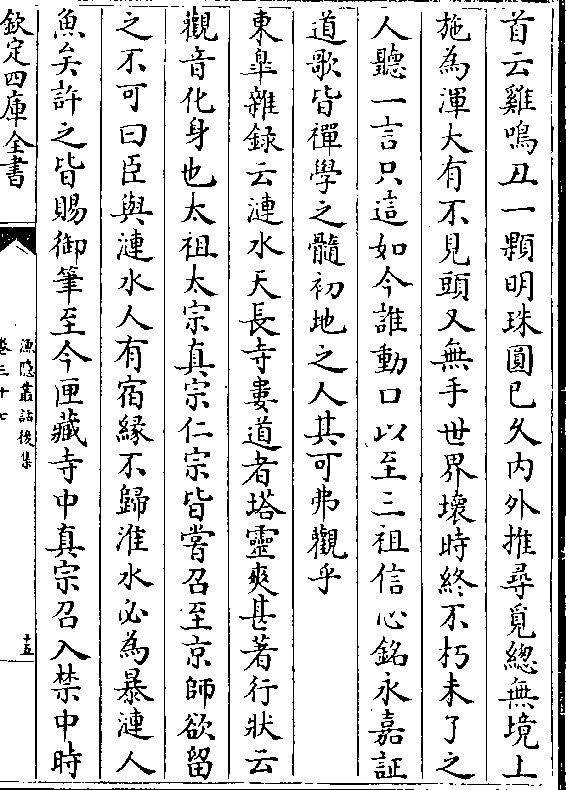 首云雞鳴丑一顆明珠圓已久内外推尋覓緫無境上
施為渾大有不見頭又無手世界壞時終不朽未了之
人聽一言只這如今誰動口以至三祖信心銘永嘉証
道歌皆禪學之髓初地之人其可弗觀乎
東臯雜録云漣水天長寺婁道者塔靈爽甚著行狀云
觀音化身也太祖太宗真宗仁宗皆嘗召至京師欲留
之不可曰臣與漣水人有宿縁不歸淮水必為暴漣人
魚矣許之皆賜御筆至今匣藏寺中真宗召入禁中時
欽定四庫全書
漁隠叢話後集
卷三十七
十五